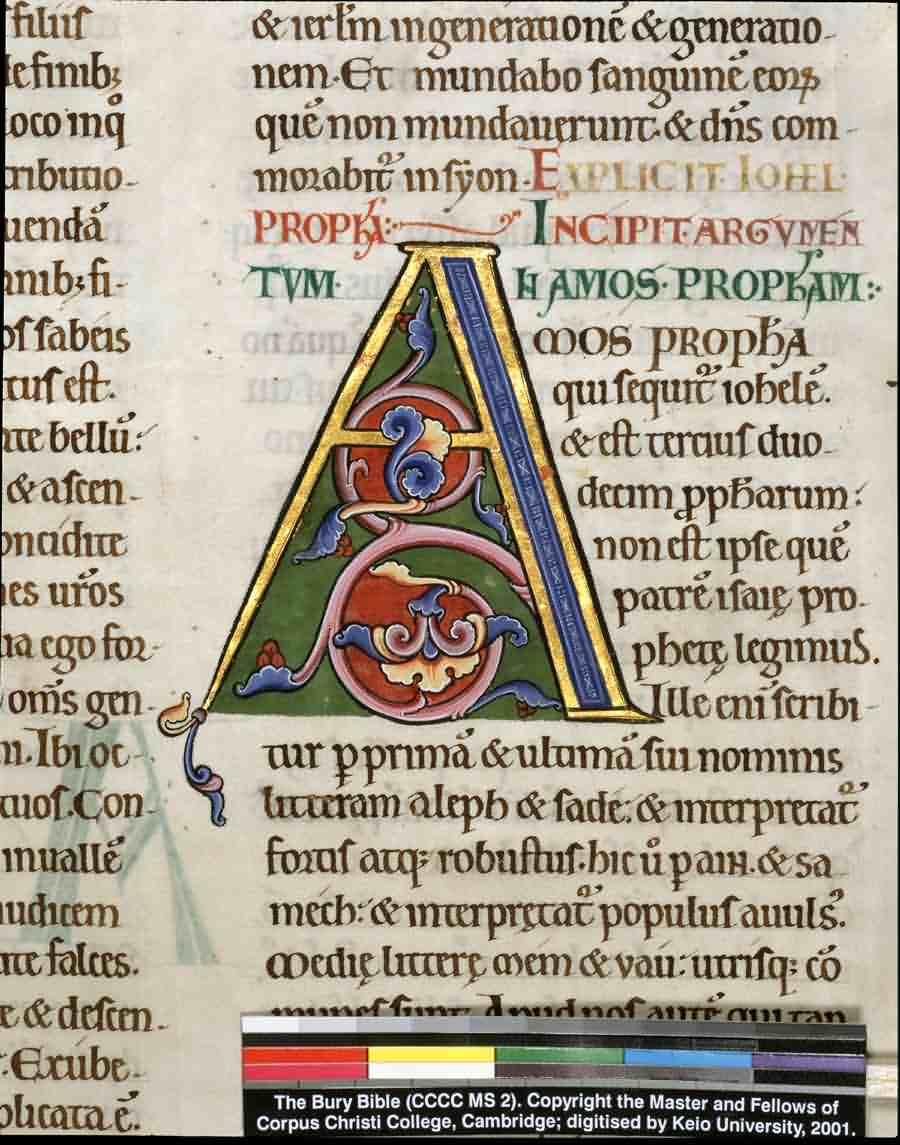 filiis
definib;
loco inq̊
tributio-
uendā
anib; fi-
os sabeis
cus est.
te bellū:
& ascen-
oncidite
es ur̄os
ia ego for-
om̄s gen-
ni. Ibi oc-
tuos. Con-
inuallē
iudicem
te falces.
e & descen-
. Exúbe-
plicata ē.
& ierłm ingenerationē & generatio-
nem. Et mundabo sanguinē eoꝝ
quē non mundauerunt. & dn̄s com-
morabit᷑ in sẏon. EXPLICIT IOHEL
PROPHA: INCIPIT ARGVMEN
TVM IN AMOS PROPHAM:
AMOS PROPHA
qui sequit᷑ iohelē.
& est tercius duo
decim ꝓpħarum:
non est ipse quē
patrē isaię pro-
phetę legimus.
Ille eni scribi-
tur ꝑ primā & ultimā sui nominis
litteram aleph & sade: & interpretat᷑
fortis atq; robustus. hic ů ꝑ ain. & sa
mech: & interpretat᷑ populus auuls᷒.
Medię litterę mem & vaú: utrisq; cō
munes sunt. Apud nos autē qui tan
The Bury Bible (CCCC MS 2). Copyright the Master and Fellows of
Corpus Christi College, Cambridge; digitised by Keio University, 2001.